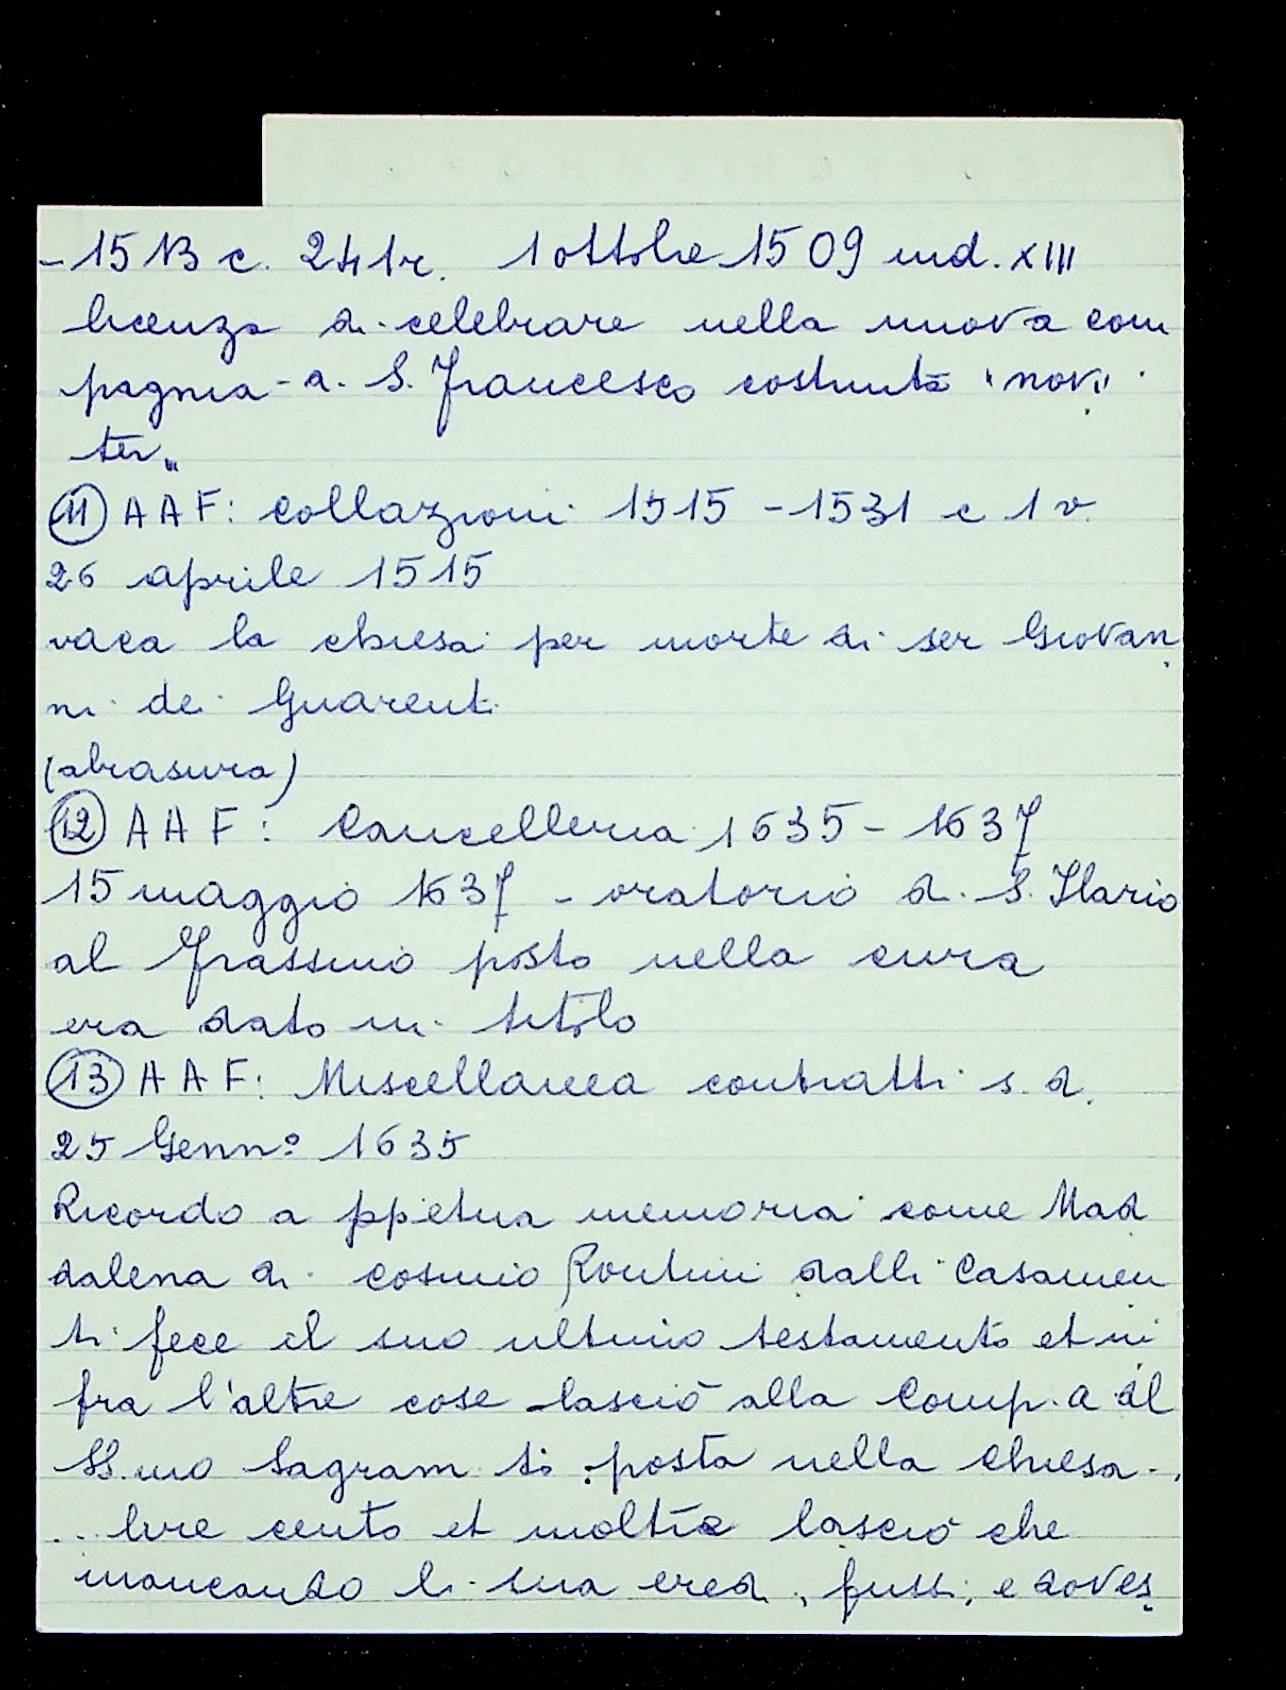 - 1513 c. 241r. 1 ottobre 1509 ind. XIII
licenza di celebrare nella nuova com
pagnia di S. Francesco costruita "novi
ter"
(11) AAF: Collazioni 1515 - 1531 c 1 v.
26 aprile 1515
vaca la chiesa per morte di ser Giovan
ni dei Guarenti
(abrasura)
(12) AAF: Cancelleria 1635 - 1637
15 maggio 1637 - oratorio di S. Ilario
al Frassino posto nella cura
era dato in titolo
(13) AAF: Miscellanea contratti s.d.
25 Genn° 1635
Ricordo a ppetua memoria come Mad
dalena di Cosimo Rontini dalli Casamen
ti fece il suo ultimo testamento et in
fra l'altre cose lasciò alla Comp.a del
SS.mo Sagram.to posta nella Chiesa ..
... lire cento et inoltre lasciò che
mancando li sua eredi, fussi, e doves